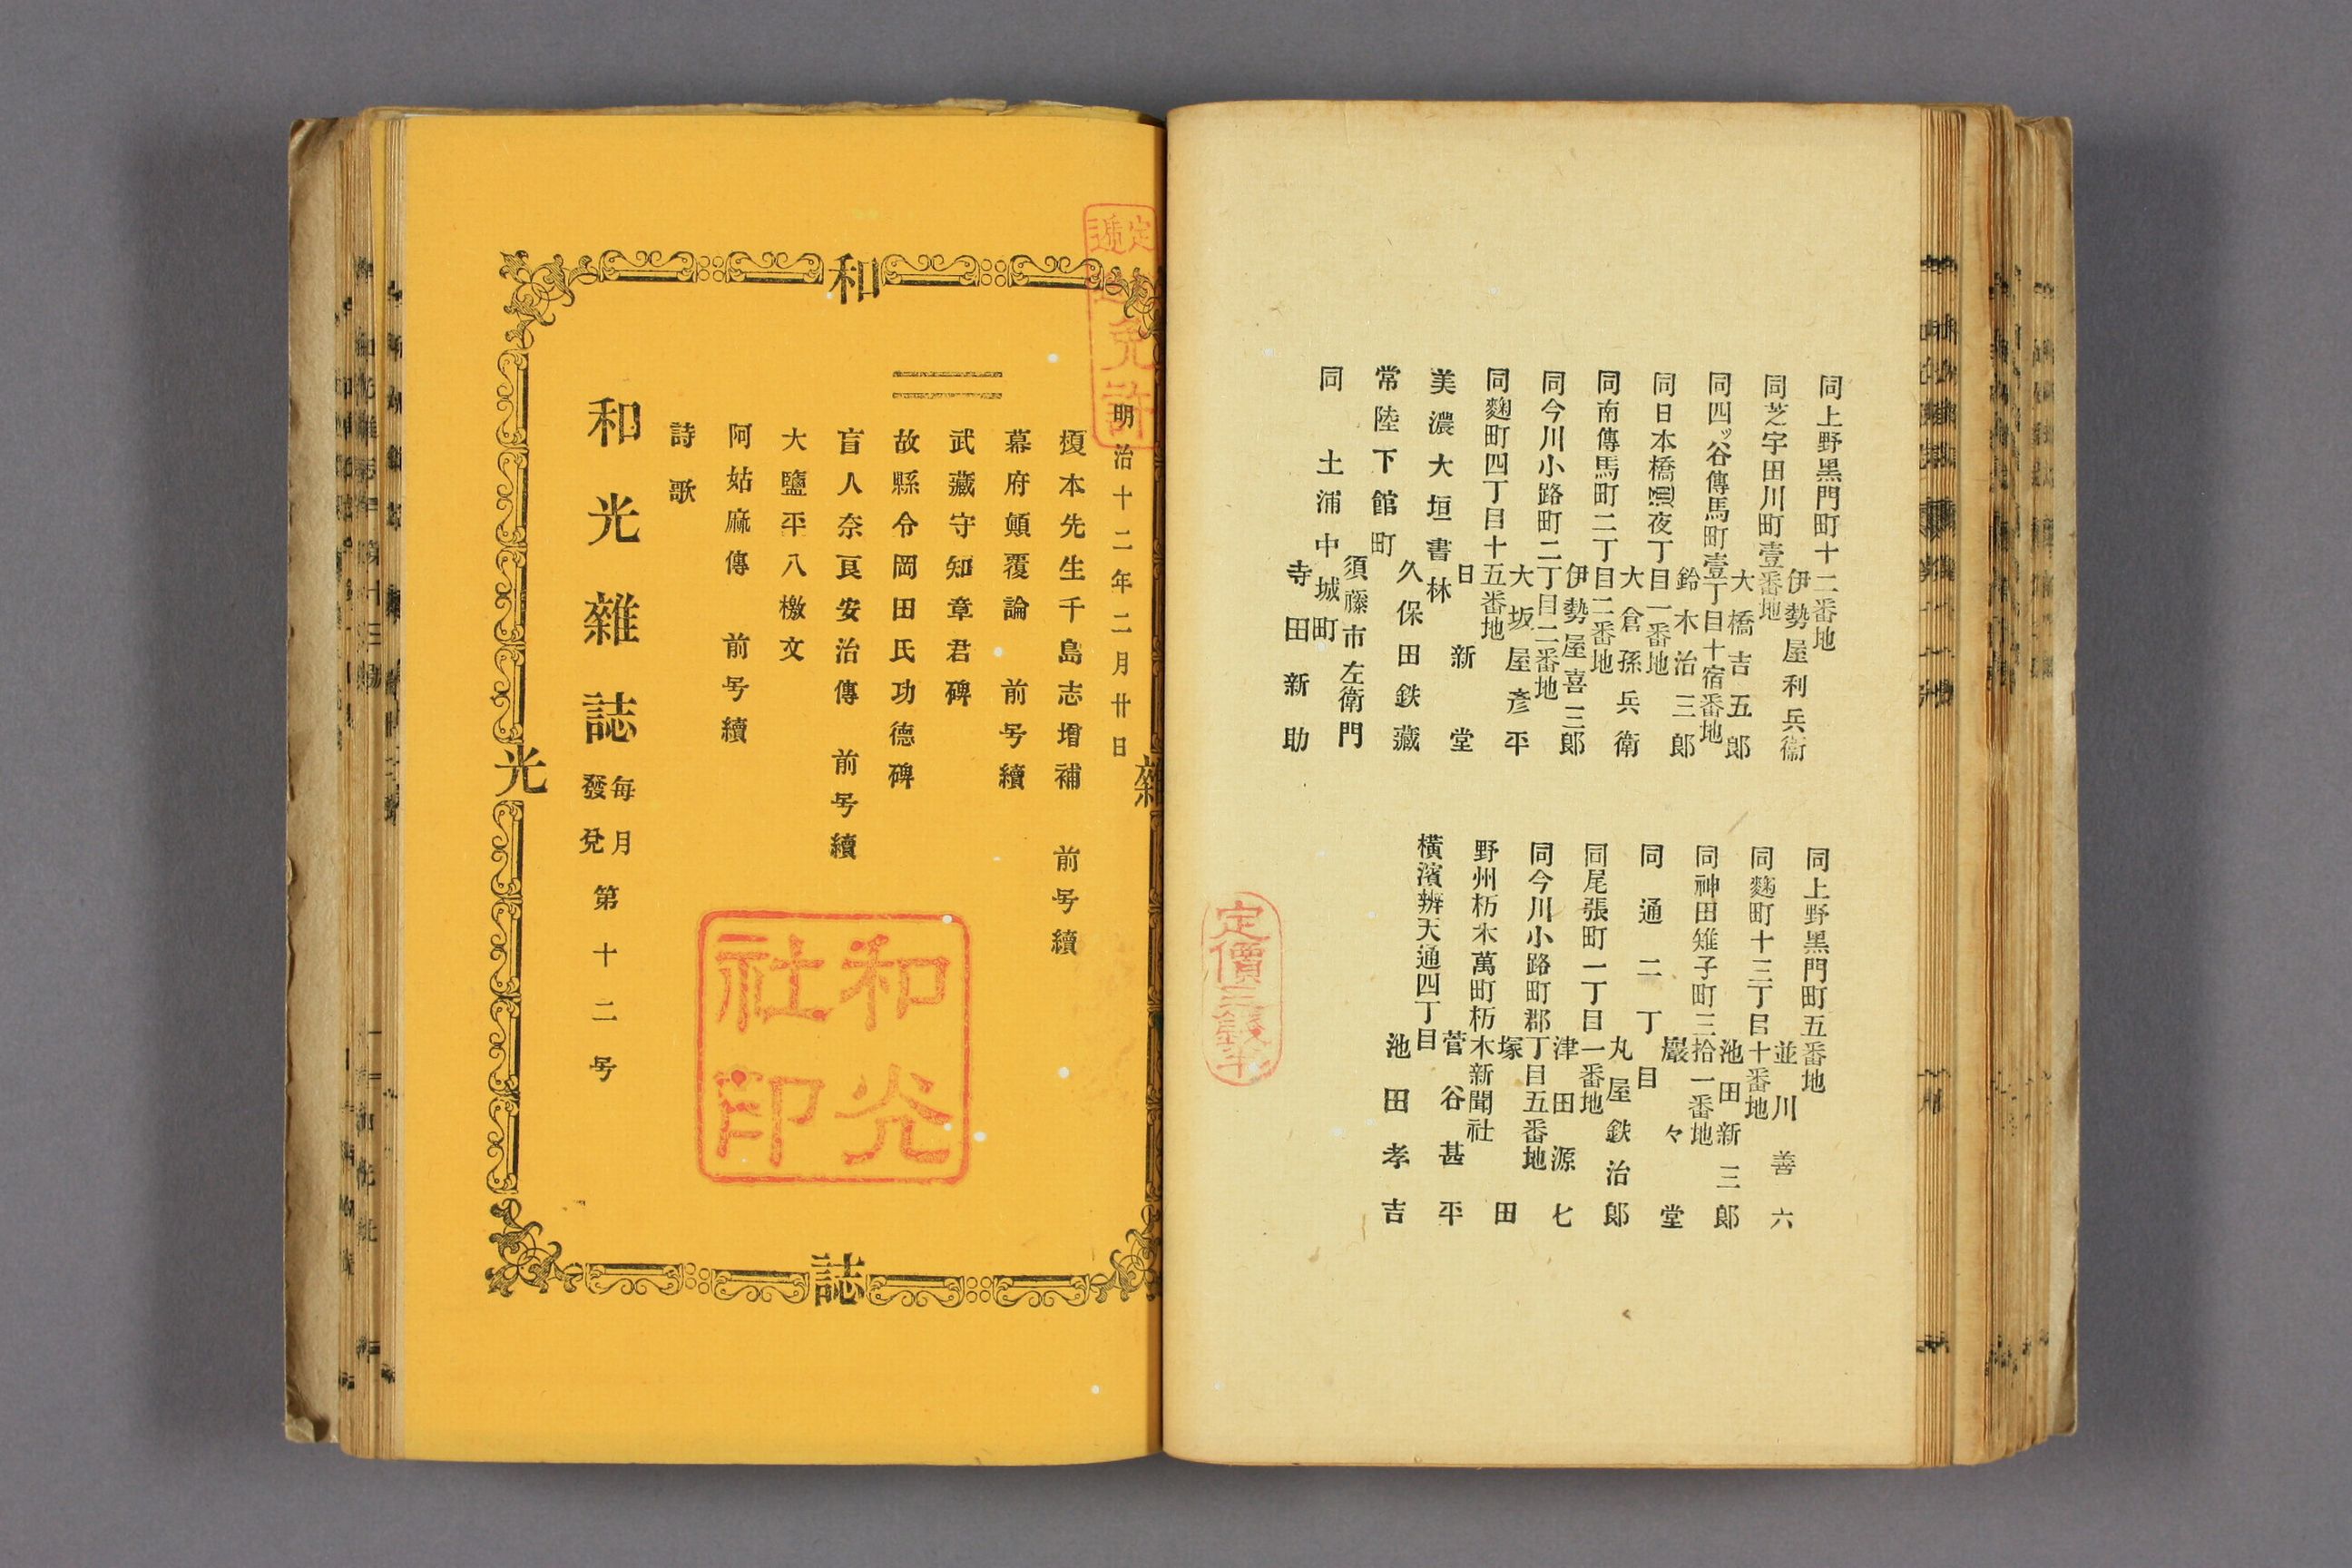 同上野黒門町十二番地
伊勢屋利兵衞
同芝宇田川町壹番地
大橋吉五郎
同四ッ谷傳馬町壹丁目十宿番地
鈴木治三郎
同日本橋通夜丁目一番地
大倉孫兵衛
同南傳馬町二丁目二番地
伊勢屋喜三郎
同今川小路町二丁目二番地
大坂屋彥平
同麴町四丁目十五番地
日新堂
美濃大垣書林
久保田鉄藏
常陸下館町
須藤市左衛門
同土浦中城町
寺田新助
同上野黒門町五番地
並川善六
同麴町十三丁目十番地
池田新三郎
同神田雉子町三拾一番地
巖々堂
同通二丁目
丸屋鉄治郎
同尾張町一丁目一番地
津田源七
同今川小路町郡丁目五番地
塚田
野州杤木萬町杤木新聞社
菅谷甚平
橫濱辨天通四丁目
池田孝吉
定價三錢半
免許
明治十二年二月廿日
榎本先生千島志增補 前号續
幕府顚覆論 前号續
武藏守知章君碑
故縣令岡田氏功德碑
盲人奈良安治傳 前号續
大鹽平八檄文
阿姑麻傳 前号續
詩歌
和光雜誌 每月發兌 第十二号
和
光
雜
誌
和光社印